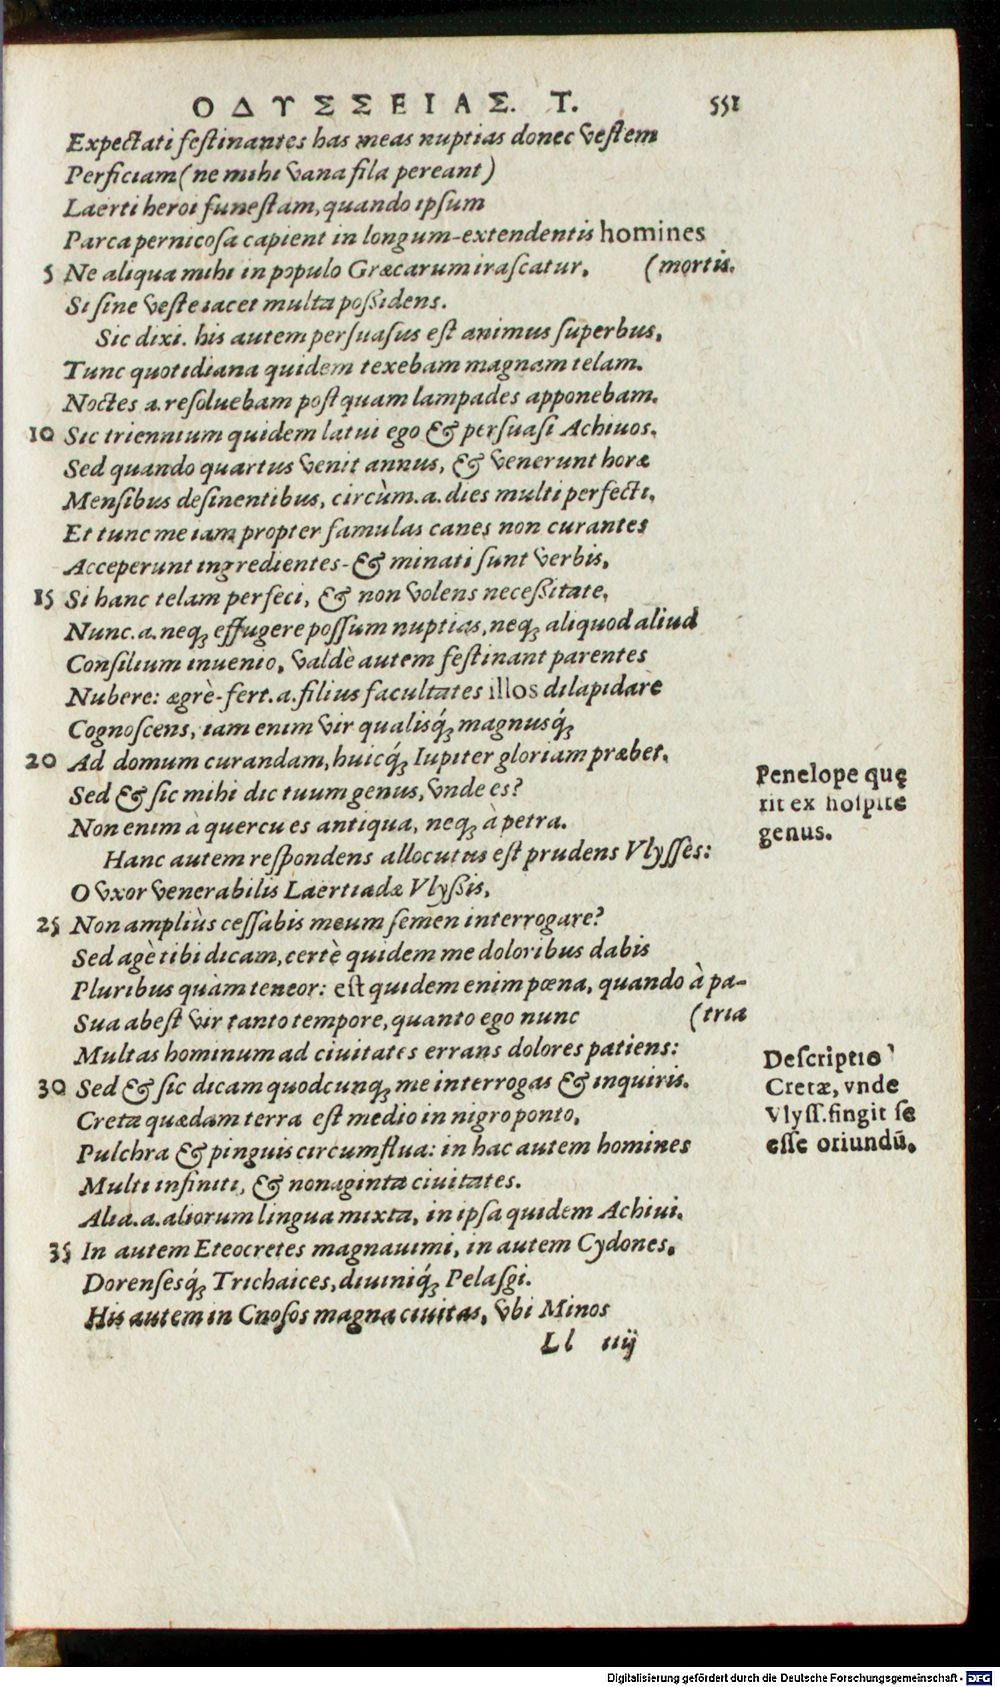 ΟΔΥΣΣΕΙΑΣ. Τ. 551
Expectati festinantes has meas nuptias donec vestem
Perficiam (ne mihi vana fila pereant)
Laerti heroi funestam, quando ipsum
Parca pernicosa capient in longum-extendentis homines
5 Ne aliqua mihi in populo Græcarum irascatur. (mortis.
Si sine veste iacet multa possidens.
Sic dixi. his autem persuasus est animus superbus,
Tunc quotidiana quidem texebam magnam telam.
Noctes a. resoluebam postquam lampades apponebam.
10 Sic triennium quidem latui ego & persuasi Achiuos.
Sed quando quartus venit annus, & venerunt horæ
Mensibus desinentibus, circùm. a. dies multi perfecti,
Et tunc me iam propter famulas canes non curantes
Acceperunt ingredientes- & minati sunt verbis,
15 Si hanc telam perfeci, & non volens necessitate,
Nunc. a. neq; effugere possum nuptias, neq; aliquod aliud
Consilium inuenio, valdè autem festinant parentes
Nubere: ægrè-fert. a. filius facultates illos dilapidare
Cognoscens, iam enim vir qualisq́; magnusq́;
20 Ad domum curandam, huicq́; Iupiter gloriam præbet.
Sed & sic mihi dic tuum genus, vnde es?
Non enim à quercu es antiqua, neq; à petra.
Hanc autem respondens allocutus est prudens Vlysses:
O vxor venerabilis Laertiadæ Vlyssis,
25 Non ampliùs cessabis meum semen interrogare?
Sed agè tibi dicam, certè quidem me doloribus dabis
Pluribus quàm teneor: est quidem enim pœna, quando à pa-
Sua abest vir tanto tempore, quanto ego nunc (tria
Multas hominum ad ciuitates errans dolores patiens:
30 Sed & sic dicam quodcunq; me interrogas & inquiris.
Creta quædam terra est medio in nigro ponto,
Pulchra & pinguis circumflua: in hac autem homines
Multi infiniti, & nonaginta ciuitates.
Alia. a. aliorum lingua mixta, in ipsa quidem Achiui.
35 In autem Eteocretes magnauimi, in autem Cydones,
Dorensesq́; Trichaices, diuiniq́; Pelasgi.
His autem in Cnosos magna ciuitas, vbi Minos
Ll iiij
Penelope quę
rit ex hospite
genus.
Descriptio
Cretæ, vnde
Vlyss. fingit se
esse oriundū.
Digitalisierung gefördert durch die Deutsche Forschungsgemeinschaft - DFG